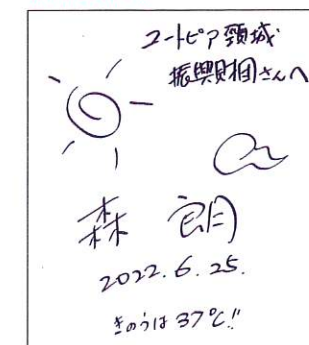 ユートピア頸城
振興財団さんへ
森 朗
2022.6.25.
きのうは37℃!!